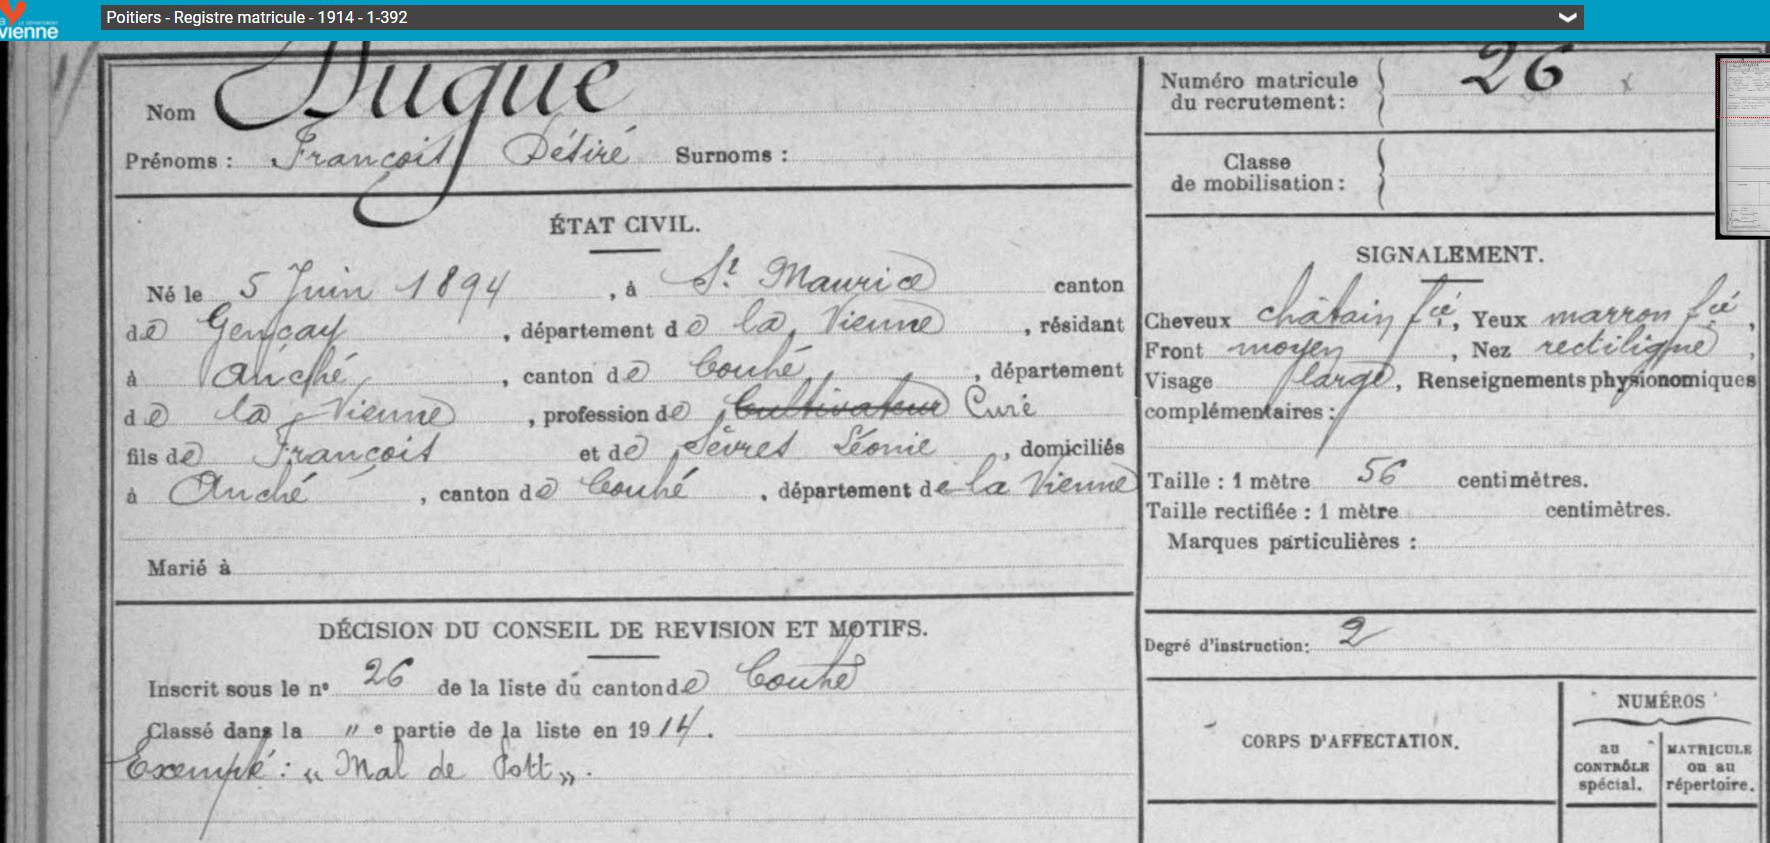 la
vienne
LE DÉPARTEMENT
Poitiers - Registre matricule - 1914 - 1-392
Nom Dugué
Prénoms : François Désiré Surnoms :
Numéro matricule du recrutement : 26
Classe de mobilisation :
ÉTAT CIVIL.
Né le 5 Juin 1894, à St Maurice canton
de Gençay, département de la Vienne, résidant
à Anché, canton de Couhé, département
de la Vienne, profession de Cultivateur Curé
fils de François et de Sèvres Léonie, domiciliés
à Anché, canton de Couhé, département de la Vienne
Marié à
DÉCISION DU CONSEIL DE REVISION ET MOTIFS.
Inscrit sous le n° 26 de la liste du canton de Couhé
Classé dans la " e partie de la liste en 1914.
Exempté : « Mal de Pott ».
SIGNALEMENT.
Cheveux châtain fcé, Yeux marron fcé,
Front moyen, Nez rectiligne,
Visage large, Renseignements physionomiques
complémentaires :
Taille : 1 mètre 56 centimètres.
Taille rectifiée : 1 mètre centimètres.
Marques particulières :
Degré d'instruction: 2
CORPS D'AFFECTATION.
NUMÉROS
au CONTRÔLE spécial.
MATRICULE ou au répertoire.